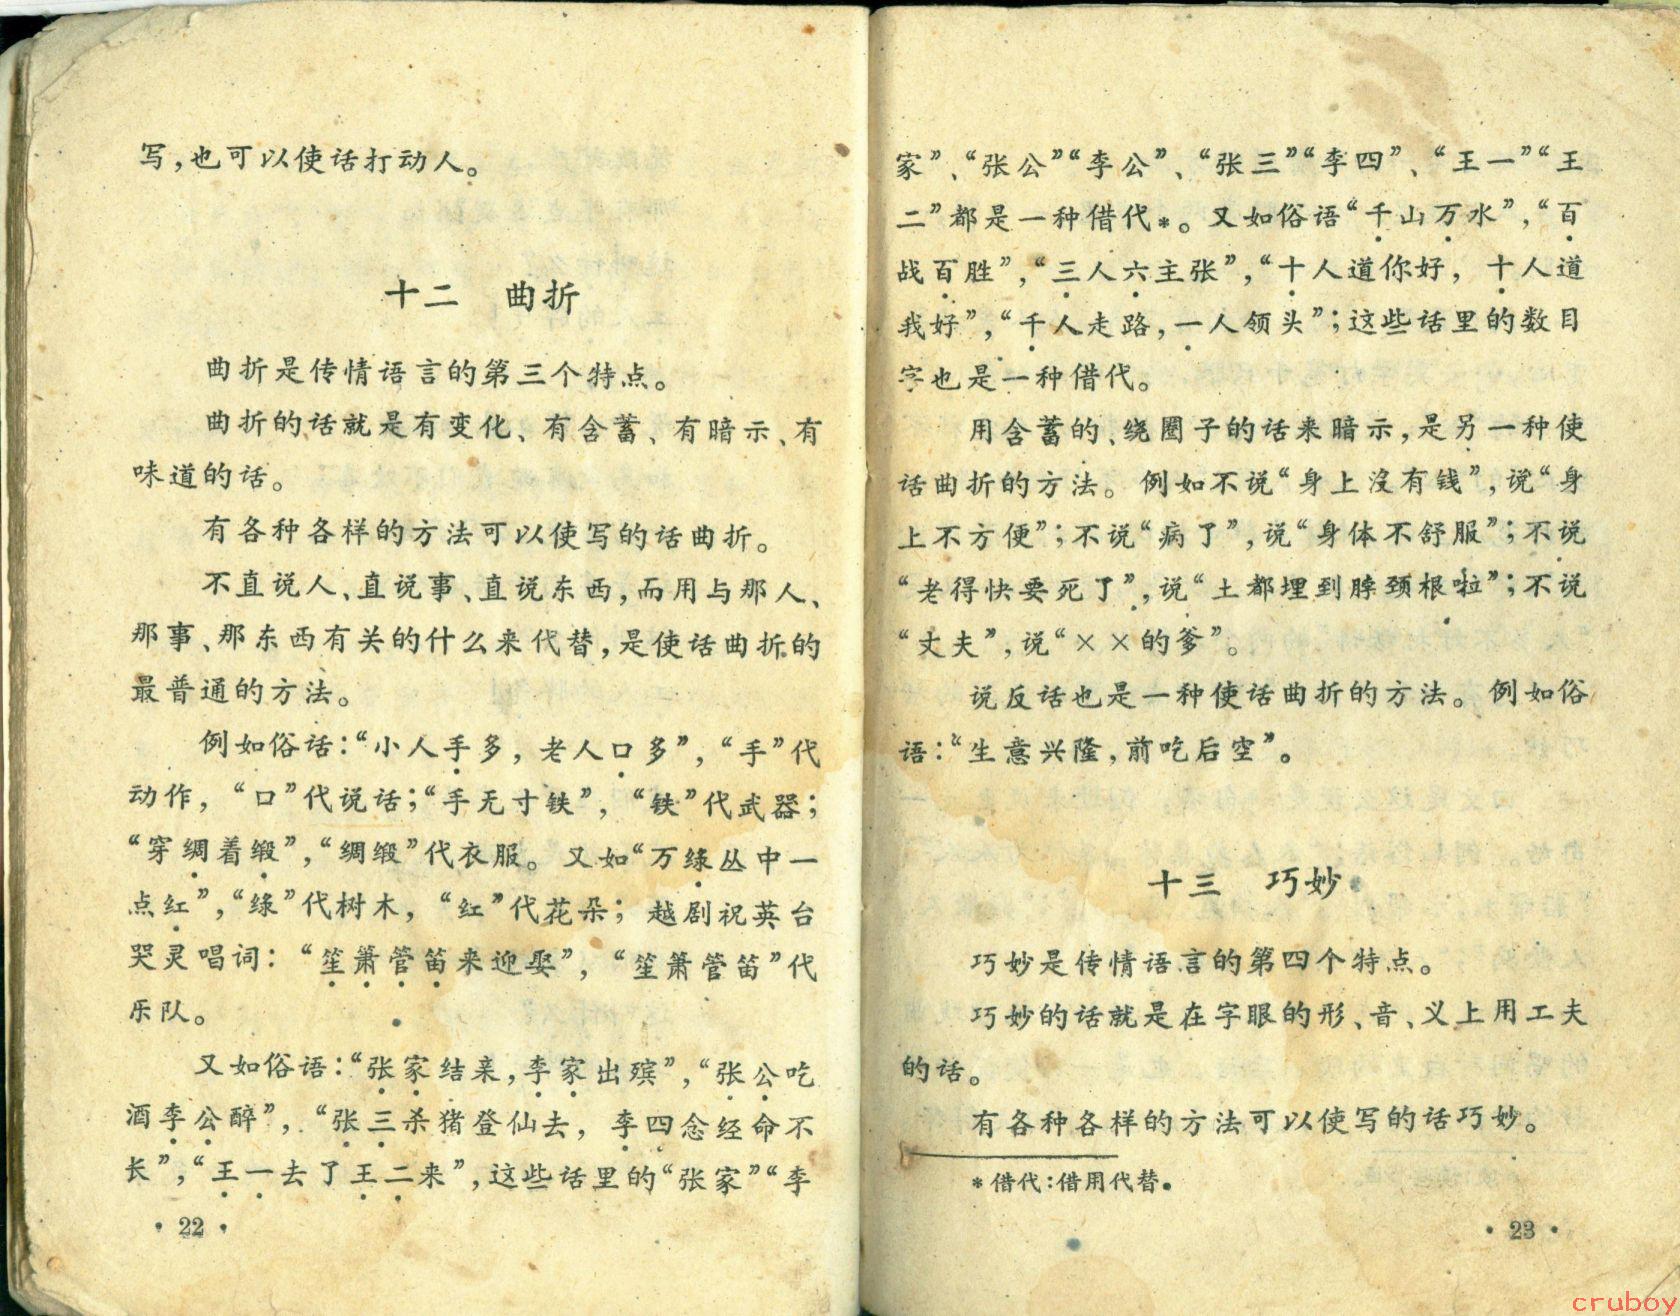 写，也可以使话打动人。
十二　曲折
曲折是传情语言的第三个特点。
曲折的话就是有变化、有含蓄、有暗示、有
味道的话。
有各种各样的方法可以使写的话曲折。
不直说人、直说事、直说东西，而用与那人、
那事、那东西有关的什么来代替，是使话曲折的
最普通的方法。
例如俗话：“小人手多，老人口多”，“手”代
动作，“口”代说话；“手无寸铁”，“铁”代武器；
“穿绸着缎”，“绸缎”代衣服。又如“万绿丛中一
点红”，“绿”代树木，“红”代花朵；越剧祝英台
哭灵唱词：“笙箫管笛来迎娶”，“笙箫管笛”代
乐队。
又如俗语：“张家结亲，李家出殡”，“张公吃
酒李公醉”，“张三杀猪登仙去，李四念经命不
长”，“王一去了王二来”，这些话里的“张家”“李
·22·
家”、“张公”“李公”、“张三”“李四”、“王一”“王
二”都是一种借代*。又如俗语“千山万水”，“百
战百胜”，“三人六主张”，“十人道你好，十人道
我好”，“千人走路，一人领头”；这些话里的数目
字也是一种借代。
用含蓄的、绕圈子的话来暗示，是另一种使
话曲折的方法。例如不说“身上没有钱”，说“身
上不方便”；不说“病了”，说“身体不舒服”；不说
“老得快要死了”，说“土都埋到脖颈根啦”；不说
“丈夫”，说“××的爹”。
说反话也是一种使话曲折的方法。例如俗
语：“生意兴隆，前吃后空”。
十三　巧妙
巧妙是传情语言的第四个特点。
巧妙的话就是在字眼的形、音、义上用工夫
的话。
有各种各样的方法可以使写的话巧妙。
*借代：借用代替。
·23·
cruboy